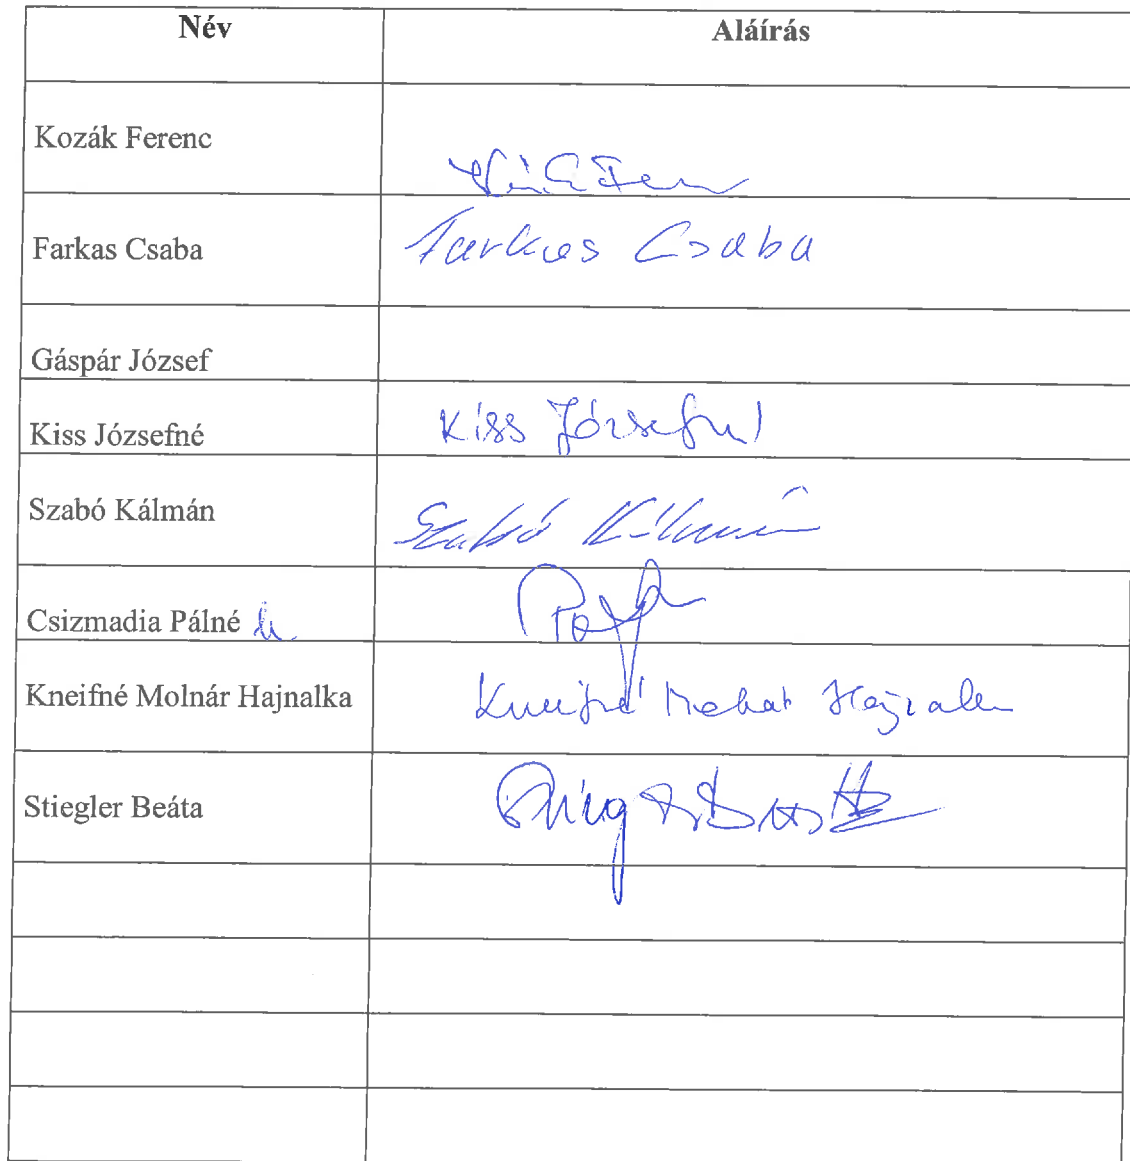 Név Aláírás
Kozák Ferenc
Farkas Csaba Farkas Csaba
Gáspár József
Kiss Józsefné Kiss Józsefné
Szabó Kálmán Szabó Kálmán
Csizmadia Pálné
Kneifné Molnár Hajnalka Kneifné Molnár Hajnalka
Stiegler Beáta